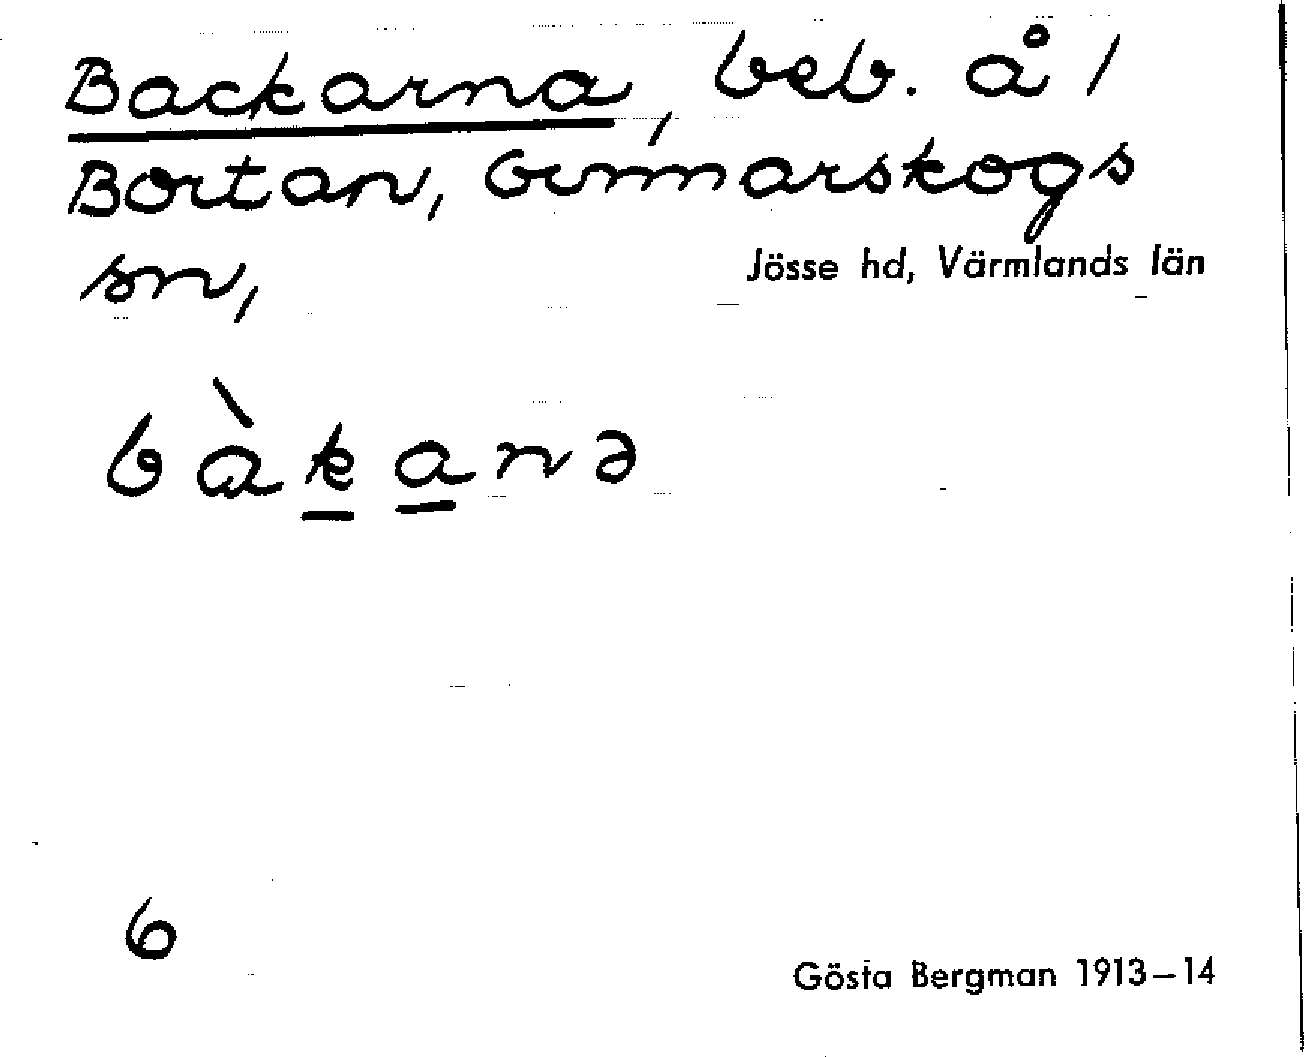 Backarna, beb. å /
Bortan, Gunnarskogs
sn,
Jösse hd, Värmlands län
bàkanə
6
Gösta Bergman 1913–14